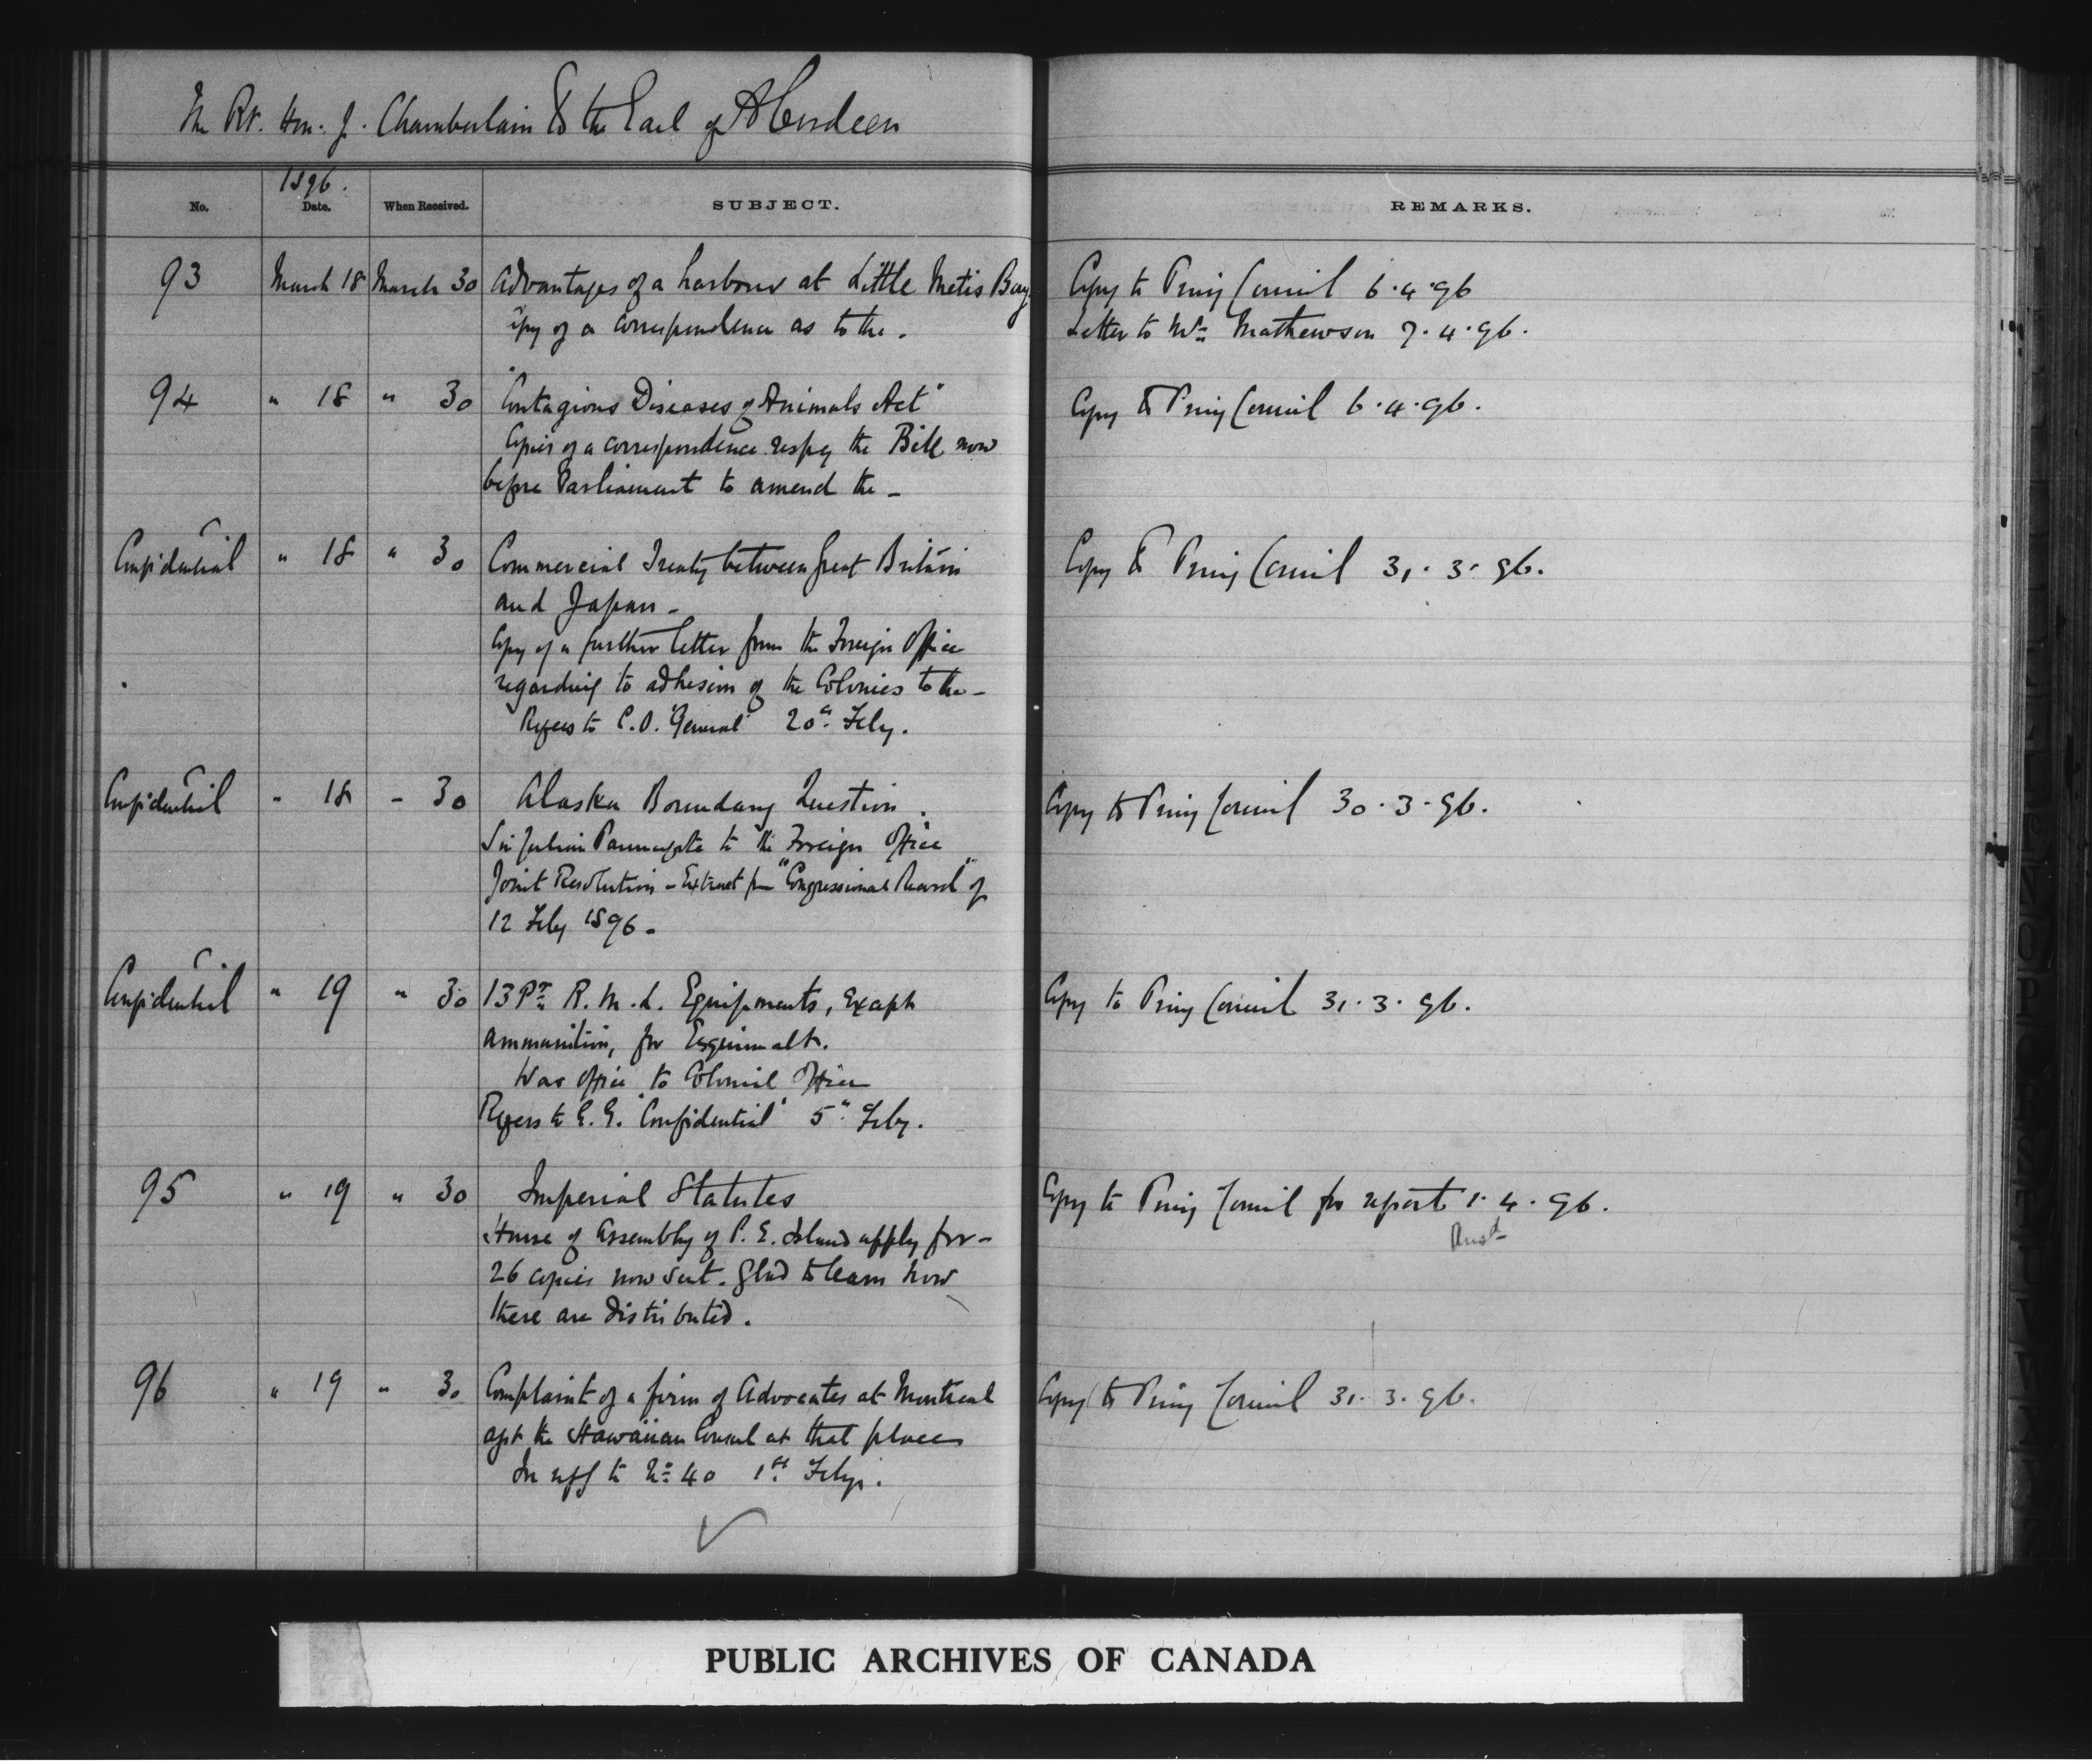 The Rt. Hon. J. Chamberlain to the Earl of Aberdeen
No. 1896. Date. When Received. SUBJECT. REMARKS.
93 March 18 March 30 Advantages of a harbour at Little Metis Bay. Copy to Privy Council 6.4.96
Copy of a correspondence as to the. Letter to Mr. Mathewson 7.4.96.
94 " 18 " 30 "Contagious Diseases of Animals Act" Copy to Privy Council 6.4.96.
Copies of a correspondence respg the Bill now
before Parliament to amend the -
Confidential " 18 " 30 Commercial Treaty between Great Britain Copy to Privy Council 31.3.96.
and Japan -
Copy of a further letter from the Foreign Office
regarding to adhesion of the Colonies to the -
Refers to C.O. 'General' 20th Feby.
Confidential " 18 " 30 Alaska Boundary Question. Copy to Privy Council 30.3.96.
Sir Julian Pauncefote to the Foreign Office
Joint Resolution - Extract from "Congressional Record" of
12 Feby 1896 -
Confidential " 19 " 30 13 Pr. R.M.L. Equipments, except Copy to Privy Council 31.3.96.
ammunition, for Esquimalt.
War Office to Colonial Office
Refers to G.G. 'Confidential' 5th Feby.
95 " 19 " 30 Imperial Statutes Copy to Privy Council for report 1.4.96.
House of Assembly of P.E. Island apply for - Ansd
26 copies now sent. Glad to learn how
these are distributed.
96 " 19 " 30 Complaint of a firm of Advocates at Montreal Copy to Privy Council 31.3.96.
agst the Hawaiian Consul at that place
In reff to No. 40 1st Feby.
PUBLIC ARCHIVES OF CANADA